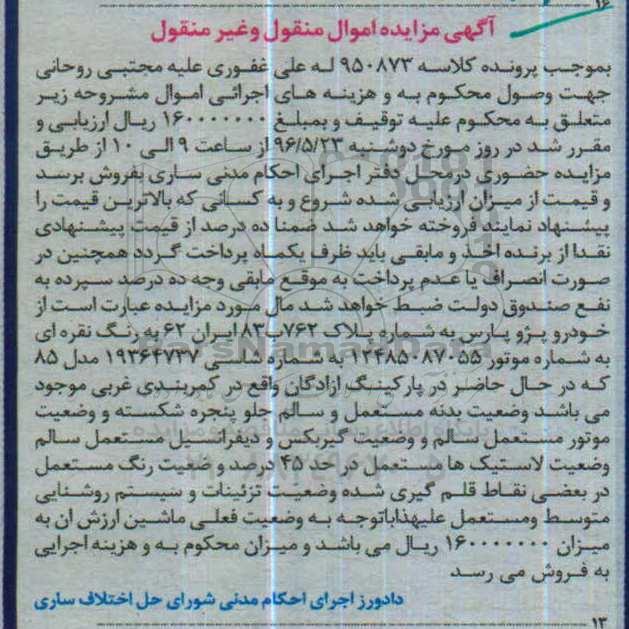 ۱۶
آگهی مزایده اموال منقول وغیر منقول
بموجب پرونده کلاسه ۹۵۰۸۷۳ له علی غفوری علیه مجتبی روحانی
جهت وصول محکوم به و هزینه های اجرائی اموال مشروحه زیر
متعلق به محکوم علیه توقیف و بمبلغ ۱۶۰۰۰۰۰۰۰ ریال ارزیابی و
مقرر شد در روز مورخ دوشنبه ۹۶/۵/۲۳ از ساعت ۹ الی ۱۰ از طریق
مزایده حضوری درمحل دفتر اجرای احکام مدنی ساری بفروش برسد
و قیمت از میزان ارزیابی شده شروع و به کسانی که بالاترین قیمت را
پیشنهاد نمایند فروخته خواهد شد ضمنا ده درصد از قیمت پیشنهادی
نقدا از برنده اخذ و مابقی باید ظرف یکماه پرداخت گردد همچنین در
صورت انصراف یا عدم پرداخت به موقع مابقی وجه ده درصد سپرده به
نفع صندوق دولت ضبط خواهد شد مال مورد مزایده عبارت است از
خودرو پژو پارس به شماره پلاک ۷۶۲ب۸۳ ایران ۶۲ به رنگ نقره ای
به شماره موتور ۱۲۴۸۵۰۸۷۰۵۵ به شماره شاسی ۱۹۳۶۴۷۳۷ مدل ۸۵
که در حال حاضر در پارکینگ ازادگان واقع در کمربندی غربی موجود
می باشد وضعیت بدنه مستعمل و سالم جلو پنجره شکسته و وضعیت
موتور مستعمل سالم و وضعیت گیربکس و دیفرانسیل مستعمل سالم
وضعیت لاستیک ها مستعمل در حد ۴۵ درصد و ضعیت رنگ مستعمل
در بعضی نقاط قلم گیری شده وضعیت تزئینات و سیستم روشنایی
متوسط ومستعمل علیهذاباتوجه به وضعیت فعلی ماشین ارزش ان به
میزان ۱۶۰۰۰۰۰۰۰ ریال می باشد و میزان محکوم به و هزینه اجرایی
به فروش می رسد
دادورز اجرای احکام مدنی شورای حل اختلاف ساری
۱۳
ParsNamadData